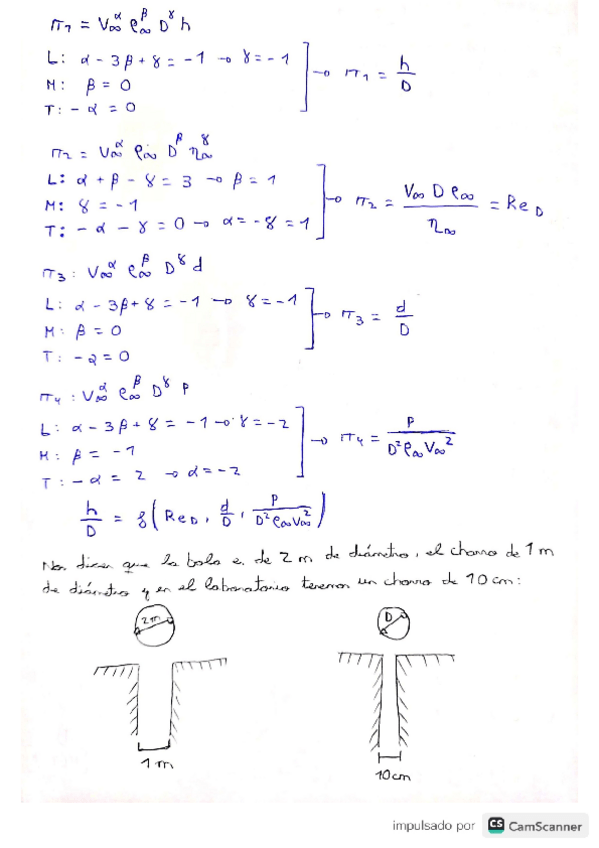 π1 = V∞^α ρ∞^β D^γ h
L: α - 3β + γ = -1 → γ = -1
M: β = 0
T: -α = 0
→ π1 = h/D
π2 = V∞^α ρ∞ D^β η∞^γ
L: α + β - γ = 3 → β = 1
M: γ = -1
T: -α - γ = 0 → α = -γ = 1
→ π2 = V∞ D ρ∞ / η∞ = Re D
π3: V∞^α ρ∞^β D^γ d
L: α - 3β + γ = -1 → γ = -1
M: β = 0
T: -α = 0
→ π3 = d/D
π4: V∞^α ρ∞^β D^γ P
L: α - 3β + γ = -1 → γ = -2
M: β = -1
T: -α = 2 → α = -2
→ π4 = P / D² ρ∞ V∞²
h/D = f(Re D, d/D, P / D² ρ∞ V∞²)
Nos dicen que la bola es de 2 m de diámetro, el chorro de 1 m
de diámetro y en el laboratorio tenemos un chorro de 10 cm:
2m
D
1 m
10 cm
impulsado por CS CamScanner